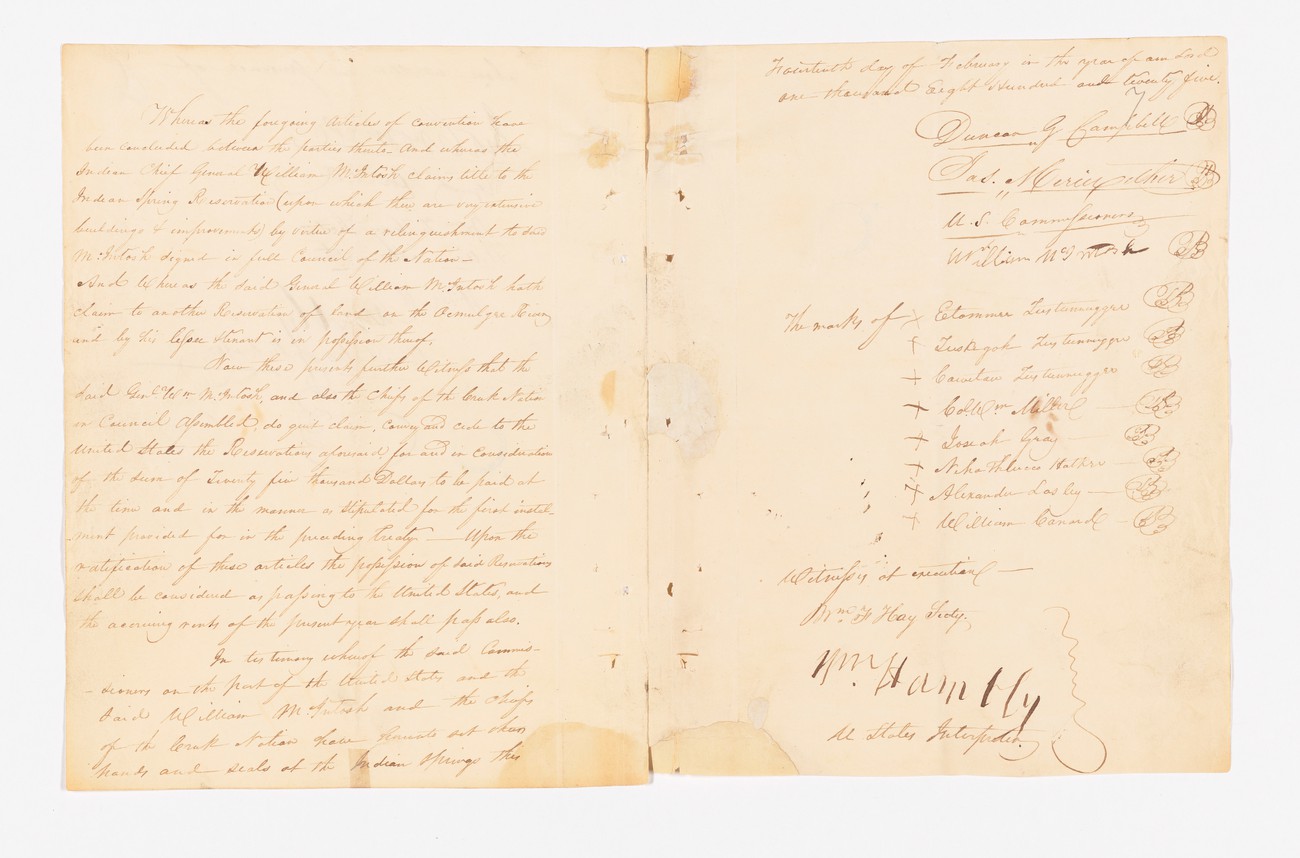 Whereas the foregoing Articles of convention have
been concluded between the parties thereto And whereas the
Indian Chief General William McIntosh claims title to the
Indian Spring Reservation (upon which there are very extensive
buildings & improvements) by virtue of a relinquishment to said
McIntosh signed in full Council of the Nation—
And Whereas the said General William McIntosh hath
claim to another Reservation of land on the Ocmulgee River
and by his lessee & tenant is in possession thereof,
Now these presents further Witness that the
said Genl Wm McIntosh, and also the Chiefs of the Creek Nation
in Council Assembled, do quit claim, convey and cede to the
United States the Reservations aforesaid, for and in consideration
of the sum of Twenty five thousand Dollars to be paid at
the time and in the manner as stipulated for the first instal-
-ment provided for in the preceding treaty— Upon the
ratification of these articles the possession of said Reservations
shall be considered as passing to the United States, and
the accruing rents of the present year shall pass also.
In testimony whereof the said Commis-
-sioners on the part of the United States and the
said William McIntosh and the Chiefs
of the Creek Nation have hereunto set their
hands and seals at the Indian Springs this
Fourteenth day of February in the year of our Lord
one thousand Eight Hundred and twenty five.
Duncan G Campbell
Jas. Meriwether
U.S. Commissioners
William McIntosh
The marks of × Etommee Tustunnuggee
× Tuskegoh Tustunnuggee
× Cowetau Tustunnugger
× Col. Wm Miller
× Josiah Gray
× Nehathlucco Hatchee
× Alexander Lasley
× William Canard
Witnesses at execution—
Wm F Hay Secty.
Wm. Hambly
U States Interpreter